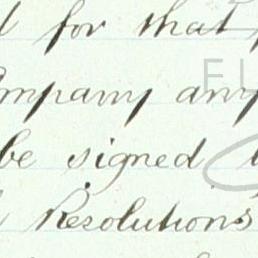 for that
ompany any
be signed
Resolutions